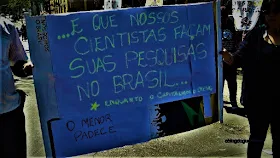 ...E QUE NOSSOS
CIENTISTAS FAÇAM
SUAS PESQUISAS
NO BRASIL...
ENQUANTO O CAPITALISMO
O MENOR
PADECE